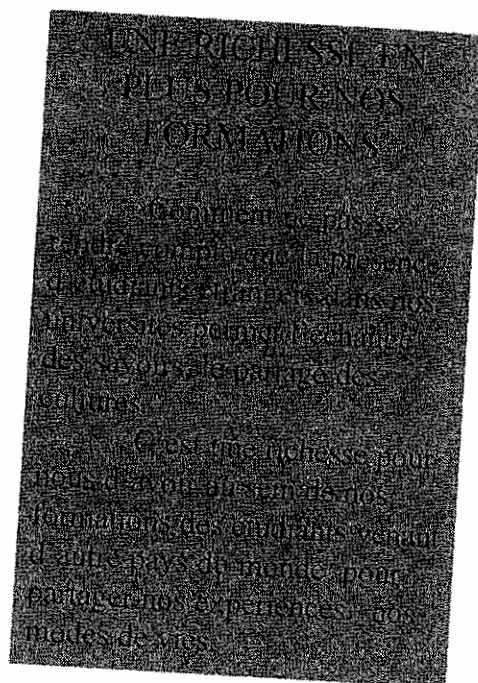 UNE RICHESSE EN
PLUS POUR NOS
FORMATIONS
Comment ne pas se
rendre compte que la présence
d'étudiants étrangers dans nos
universités permet l'échange
des savoirs, le partage des
cultures.
C'est une richesse pour
nous d'avoir au sein de nos
formations des étudiants venant
d'autre pays du monde, pour
partager nos expériences, nos
modes de vies.